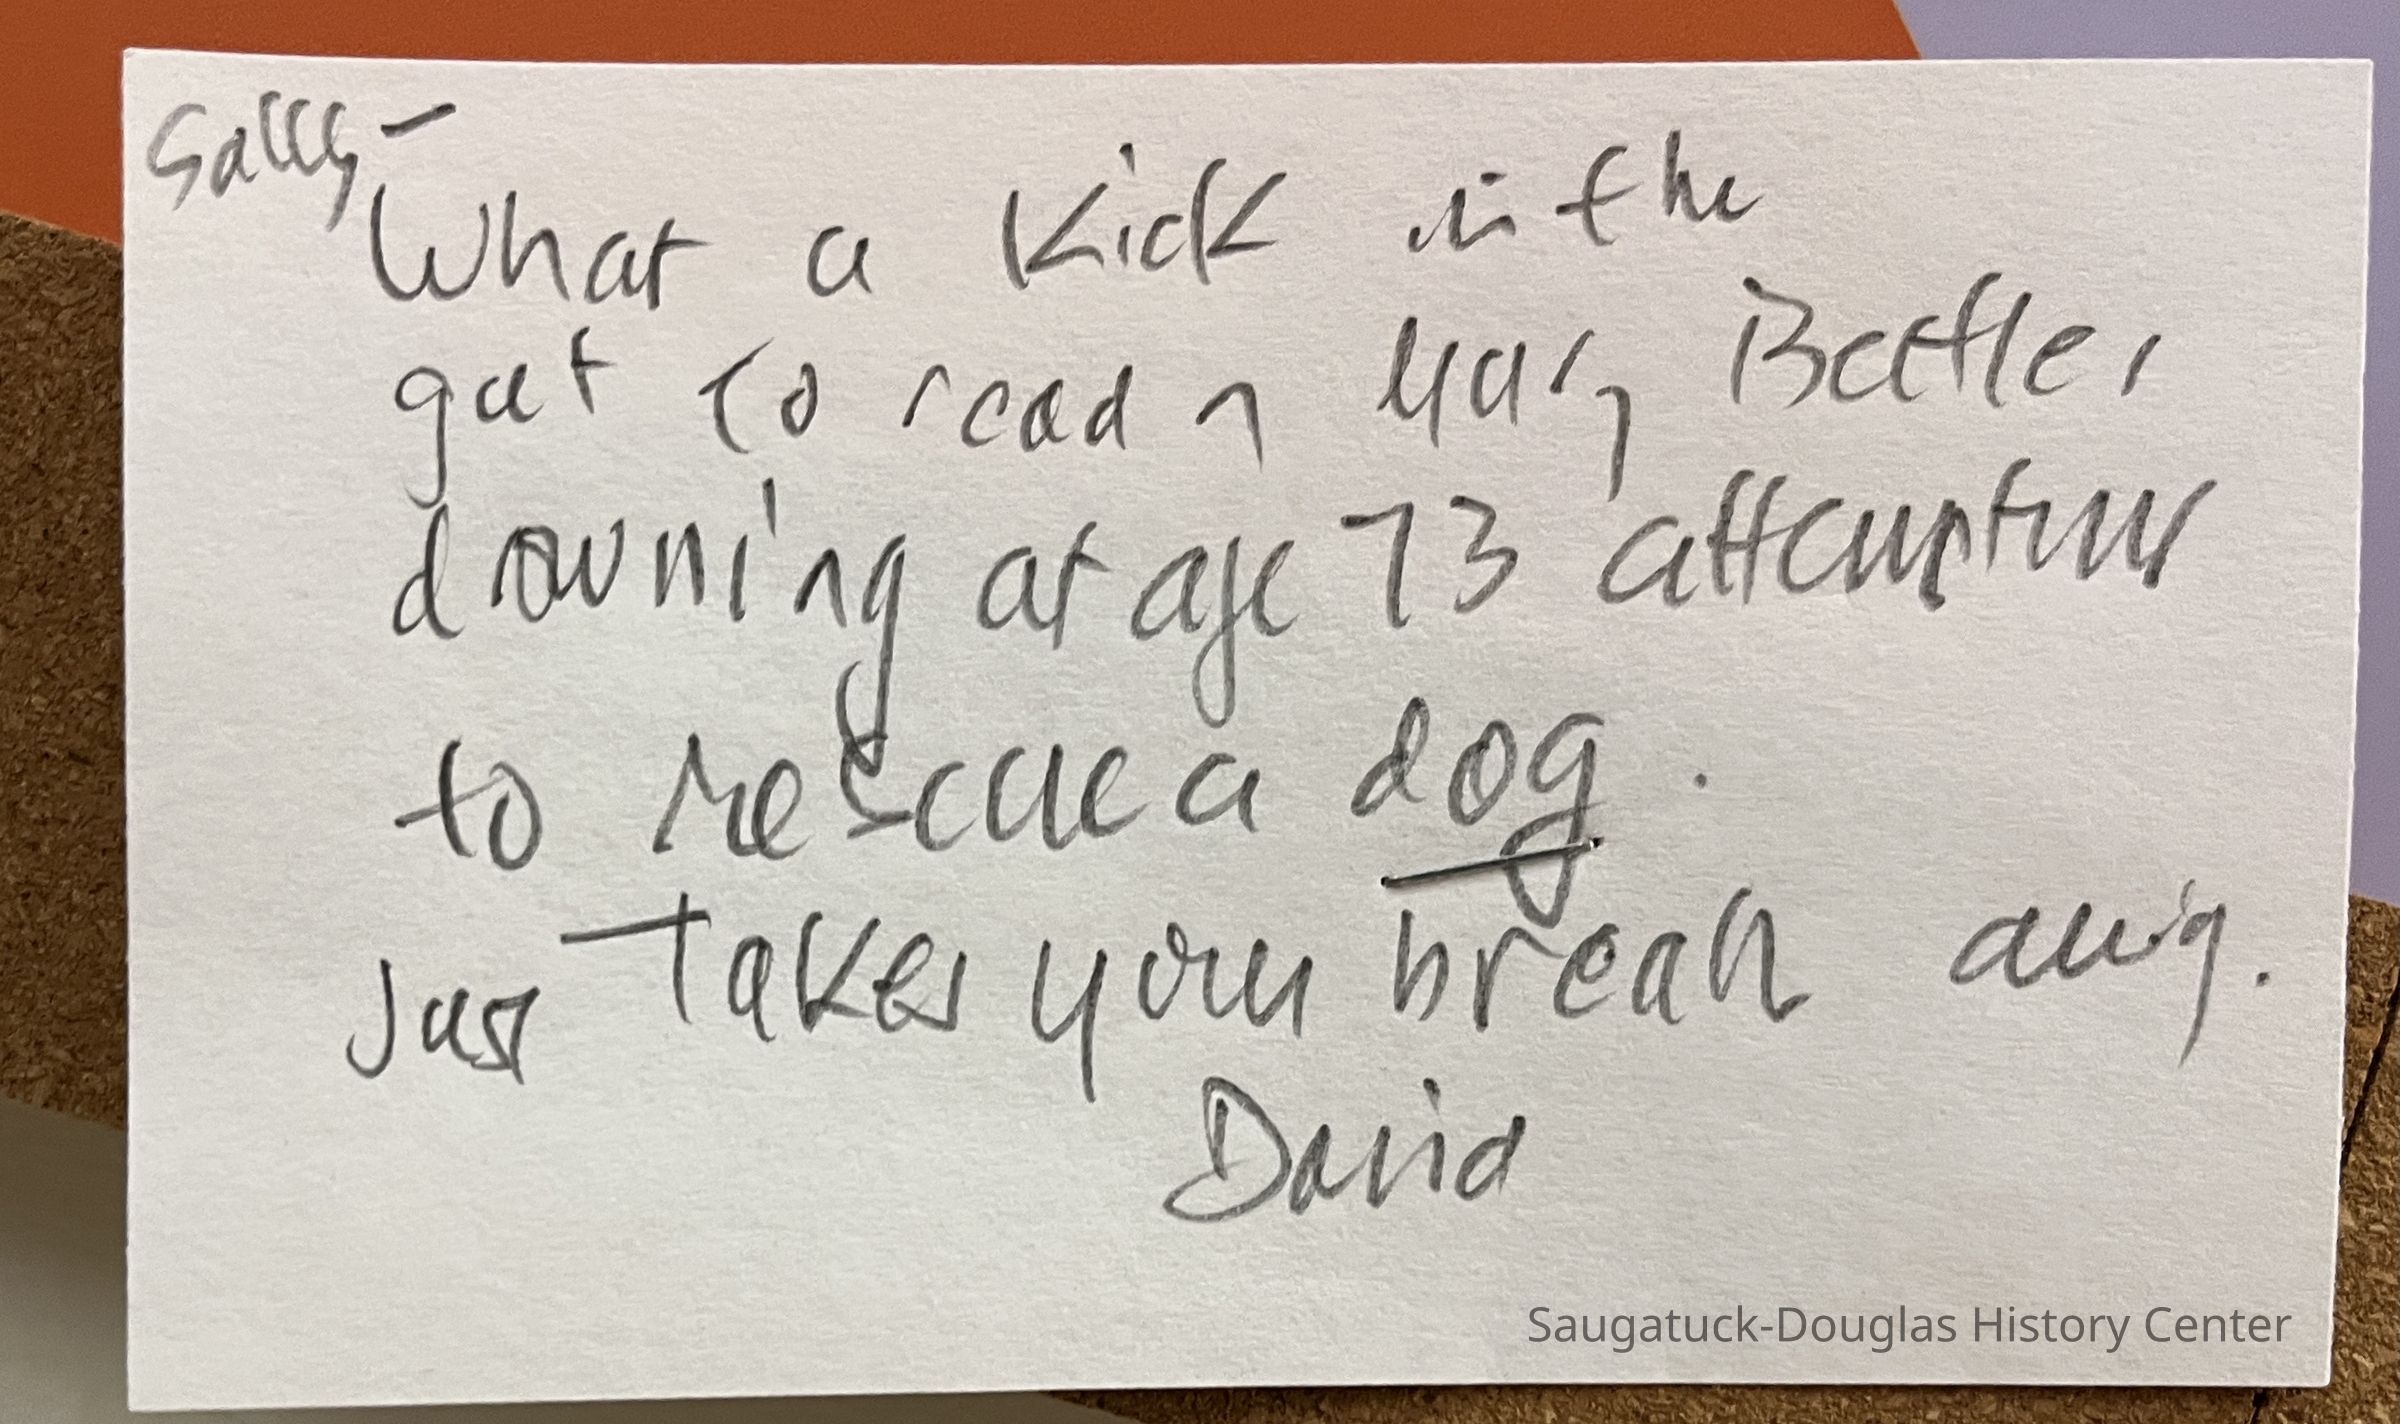 Sally –
What a Kick in the
gut to read of Mary Bettles
drowning at age 73 attempting
to rescue a dog.
Just Takes your breath away.
David
Saugatuck-Douglas History Center